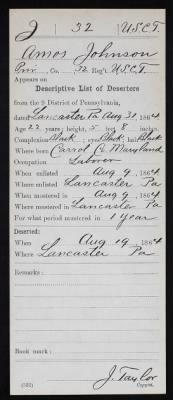 J | 32 | U.S.C.T.
Amos Johnson
Priv., Co. , 32 Reg't U.S.C.T.
Appears on
Descriptive List of Deserters
from the 9 District of Pennsylvania,
dated Lancaster Pa Aug 31, 1864
Age 22 years; height, 5 feet 8 inches.
Complexion Black; eyes Black; hair Black
Where born Carrol Co Maryland
Occupation Laborer
When enlisted Aug 9, 1864
Where enlisted Lancaster Pa
When mustered in Aug 9, 1864
Where mustered in Lancaster Pa
For what period mustered in 1 year
Deserted:
When Aug 19, 1864
Where Lancaster Pa
Remarks:
Book mark:
J. Taylor
Copyist.